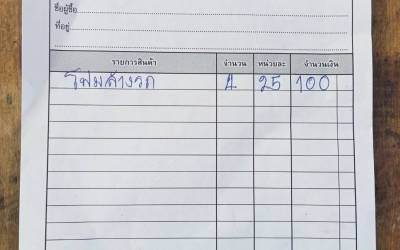 ชื่อผู้ซื้อ
ที่อยู่
รายการสินค้า จำนวน หน่วยละ จำนวนเงิน
โฟมล้างรถ 4 25 100